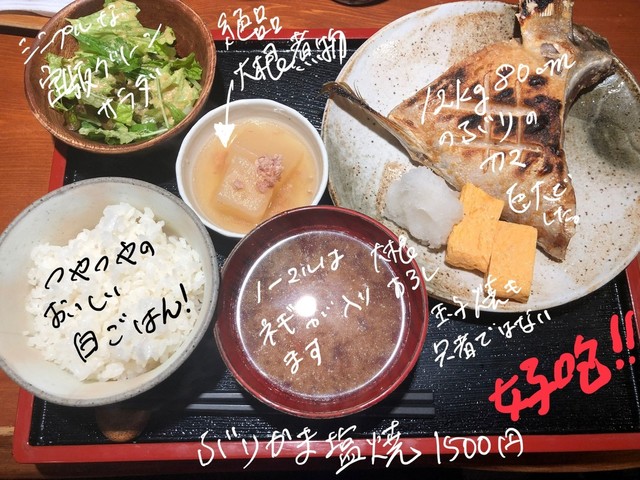 シンプルな
定番グリーン
サラダ
絶品
大根煮物
12kg 80cm
のぶりの
カマ
でした。
つやつやの
おいしい
白ごはん!
ネギが入り
ます
大根
おろし
玉子焼き
只者ではない
好吃!!
ぶりかま塩焼 1500円